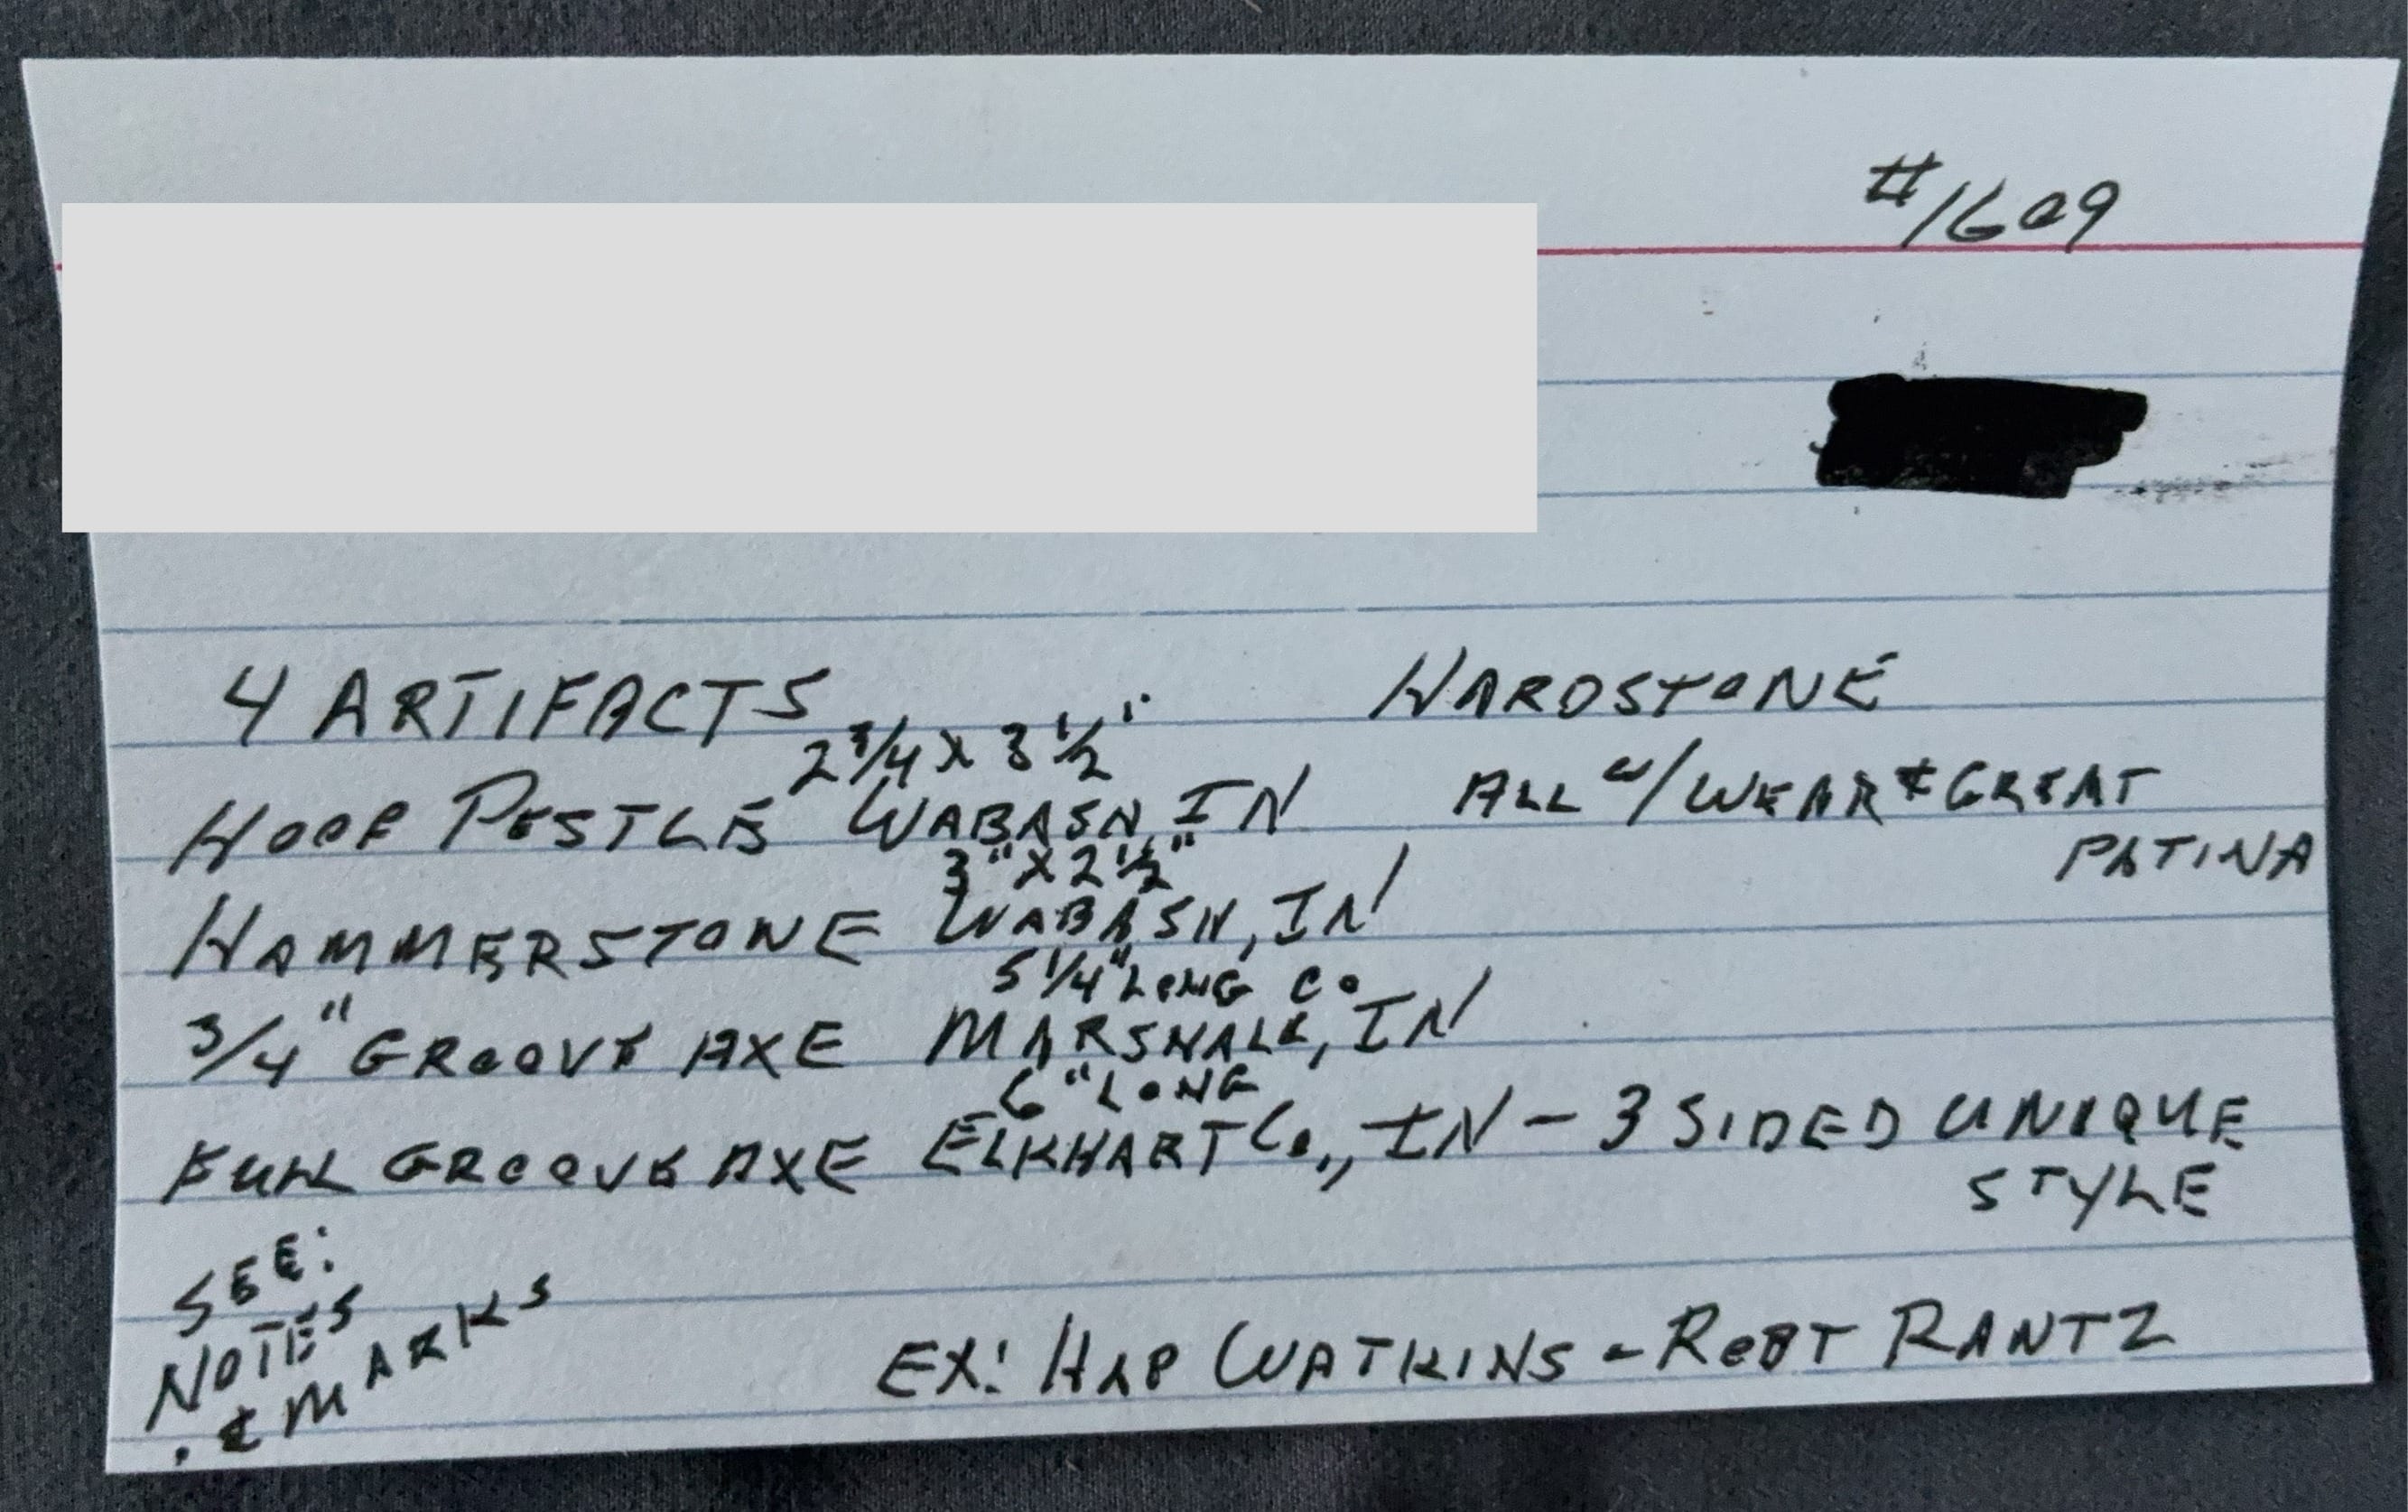 #1609
4 ARTIFACTS HARDSTONE
2 3/4 X 3 1/2"
HOOF PESTLE WABASH, IN ALL W/ WEAR & GREAT
PATINA
3" X 2 1/2"
HAMMERSTONE WABASH, IN
5 1/4" LONG CO
3/4" GROOVE AXE MARSHALL, IN
6" LONG
FULL GROOVE AXE ELKHART Co., IN - 3 SIDED UNIQUE
STYLE
SEE:
NOTES
& MARKS
EX: HAP WATKINS - ROBT RANTZ